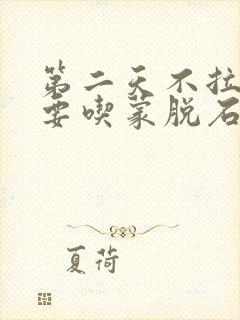 第二天不拉
要喫蒙脱石
夏荷